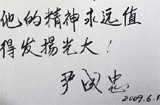 他的精神永远值
得发揚光大！
尹國忠
2009.6.1